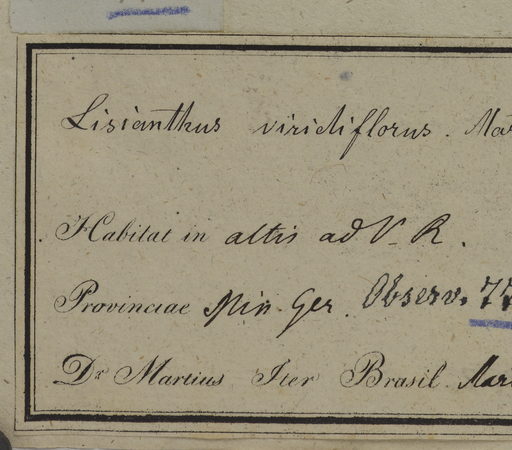 Lisianthus viridiflorus. Mar
Habitat in altis ad V. R.
Provinciae Min. Ger. Observ. 77
Dr Martius Iter Brasil. Mart